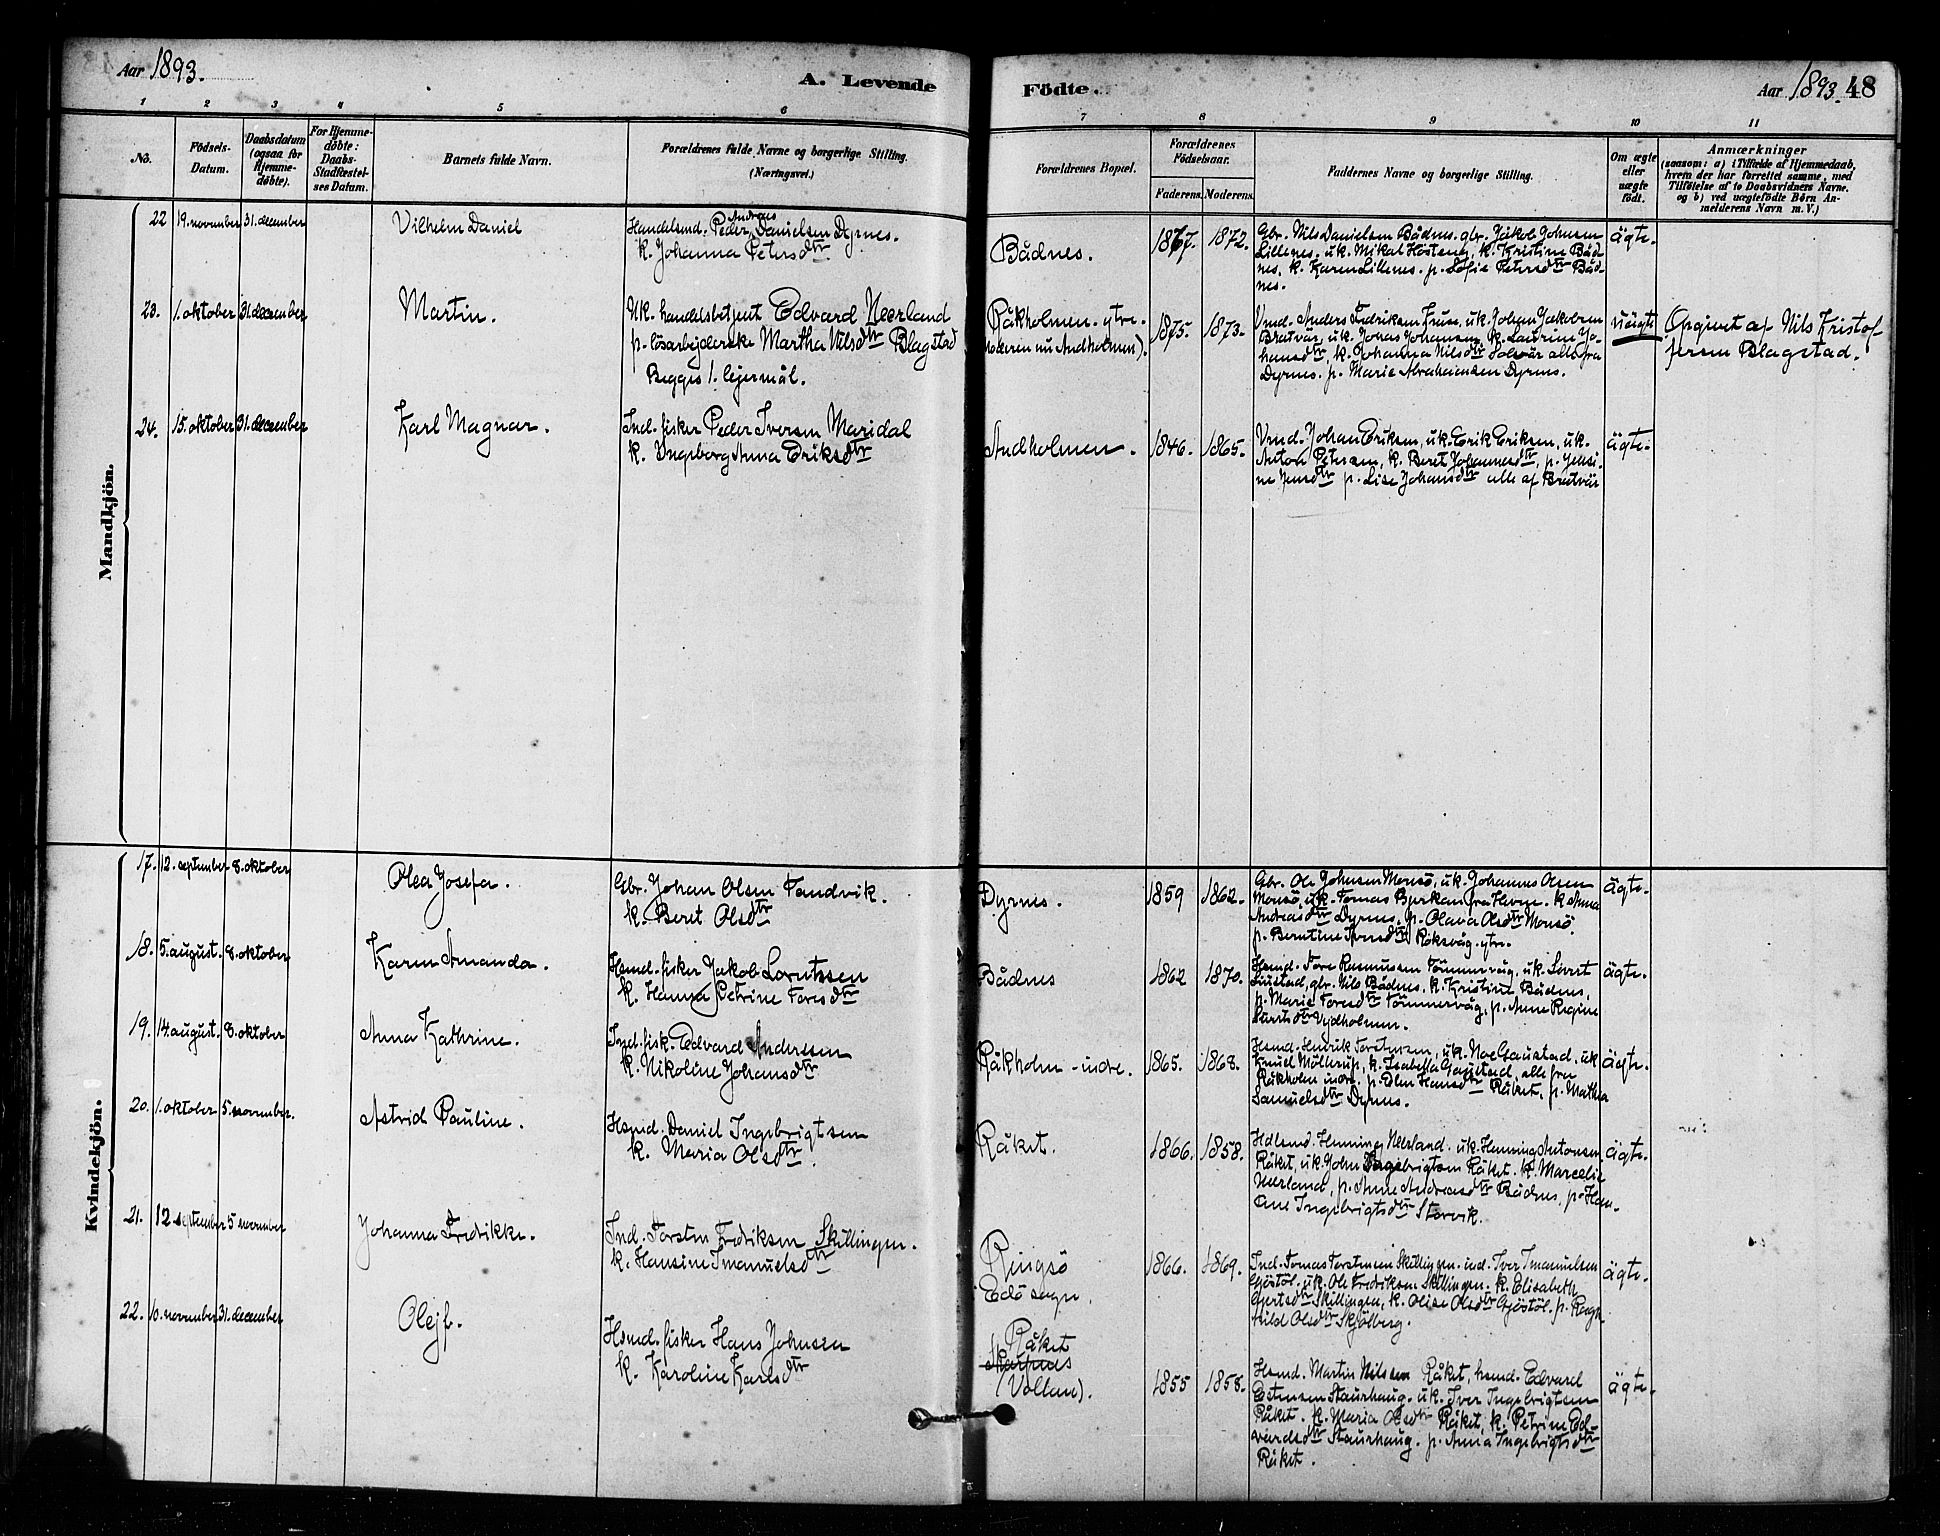 Aar 1893.
A. Levende
Födte.
Aar 1893. 48
1 2 3 4 5 6 7 8 9 10 11
No.
Födsels-Datum.
Daabsdatum (ogsaa for Hjemme-døbte).
For Hjemme-døbte: Daabs-Stadfæstel-ses Datum.
Barnets fulde Navn.
Forældrenes fulde Navne og borgerlige Stilling. (Næringsvei.)
Forældrenes Bopæl.
Forældrenes Födselsaar.
Faderens. Moderens.
Faddernes Navne og borgerlige Stilling.
Om ægte eller uægte født.
Anmærkninger
(saasom: a) i Tilfælde af Hjemmedaab,
hvem der har forrettet samme, med
Tilföielse af to Daabsvidners Navne.
og b) ved uægtefødte Börn An-
melderens Navn m. V.)
Mandkjön.
22 19. november 31. december
Vilhelm Daniel
Handelsmd. Peder Andreas Danielsen Dyrnes.
k. Johanna Petersdtr
Bådnes.
1867. 1872.
Gbr. Nils Danielsen Bådnes. gbr. Jakob Johnsen
Lillenes. uk. Mikal Hösteng, k. Kristine Båd-
nes. k. Karen Lillenes. p. Sofie Petersdtr Båd-
nes.
ägte.
23. 1. oktober 31. december
Martin.
Uk. handelsbetjent Edvard Neerland
p. lösarbejderske Martha Nilsdtr Blagstad
Begges 1. lejermål.
Råkholmen - ytre.
(Moderen nu Andholmen).
1875. 1873.
Vmd. Anders Fredriksen Fruse, uk. Johan Jakobsen
Bratvär, uk. Jonas Johansen, k. Laurine Jo-
hansdtr, k. Johanna Nilsdtr Solvär alle fra
Dyrnes. p. Marie Abrahamsen Dyrnes.
uägte
Opgivet af Nils Kristof
fersen Blagstad.
24. 15. oktober 31. december
Karl Magnar.
Ind. fisker Peder Iversen Maridal
k. Ingeborg Anna Eriksdtr
Andholmen.
1846. 1865.
Vmd. Johan Eriksen, uk. Erik Eriksen, uk.
Anton Petersen, k. Beret Johannesdtr, p. Jensi-
ne Jensdtr p. Lise Johansdtr alle af Bratvär
ägte.
Kvindekjön.
17. 12. september 8. oktober
Olea Josefa.
Gbr. Johan Olsen Tandvik.
k. Beret Olsdtr
Dyrnes.
1859 1862.
Gbr. Ole Johnsen Monsö, uk. Johannes Olsen
Monsö, uk. Tomas Bjerkan fra Hevne. k. Anna
Andreasdtr Dyrnes, p. Olava Olsdtr Monsö.
p. Berntine Iversdtr Röksvåg. ytre.
ägte.
18. 5. august. 8. oktober
Karen Amanda.
Hsmd. fisker Jakob Lorntssen
k. Hanna Petrine Toresdtr
Bådnes
1862 1870.
Hsmd. Tore Rasmussen Tömmervåg, uk. Sivert
Gustad, gbr. Nils Bådnes, k. Kristine Bådnes,
p. Marie Toresdtr Tömmervåg, p. Anne Regine
Sivertsdtr Vejdholmen.
ägte.
19. 14. august. 8. oktober
Anna Kathrine.
Ind. fisk. Edvard Anderssen
k. Nikoline Johansdtr
Råkholm - indre.
1865. 1868.
Hsmd. Henrik Torstensen, uk. Noe Gaustad. uk
Knud Möllerup, k. Isabella Gaustad, alle fra
Råkholm indre. p. Elen Hansdtr Råket, p. Mathea
Samuelsdtr Dyrnes.
ägte.
20. 1. oktober 5. november.
Astrid Pauline.
Hsmd. Daniel Ingebrigtsen
k. Maria Olsdtr.
Råket.
1866. 1858.
Hdlsmd. Henning Neerland. uk. Henning Antonsen
Råket, uk. John Ingebrigtsen Råket. k. Marcelie
Neerland, p. Anne Andreasdtr Bådnes, p. Han-
ane Ingebrigtsdtr Storvik.
ägte.
21. 12 september 5 november
Johanna Fredrikke.
Ind. Torsten Fredriksen Skillingen.
k. Hansine Imanuelsdtr
Ringsö
Edö sogn.
1866. 1869.
Ind. Tomas Torstensen Skillingen. ind. Iver Imanuelsen
Gjöstöl. uk. Ole Fredriksen Skillingen. k. Elisabeth
Gjertsdtr Skillingen, k. Olise Olsdtr Gjöstöl. p. Ragn
hild Olsdtr Skjölberg.
ägte.
22. 10. november 31. december
Olejf.
Hsmd. fisker Hans Johnsen
k. Karoline Karlsdtr
Råket
Skarpnes
(Volland).
1855 1858.
Hsmd. Martin Nilssen Råket, hsmd. Edvard
Estensen Staurhaug. uk. Iver Ingebrigtsen
Råket. k. Maria Olsdtr Råket, k. Petrine Ed-
vardsdtr Staurhaug. p. Anna Ingebrigtsdtr
Råket.
ägte.